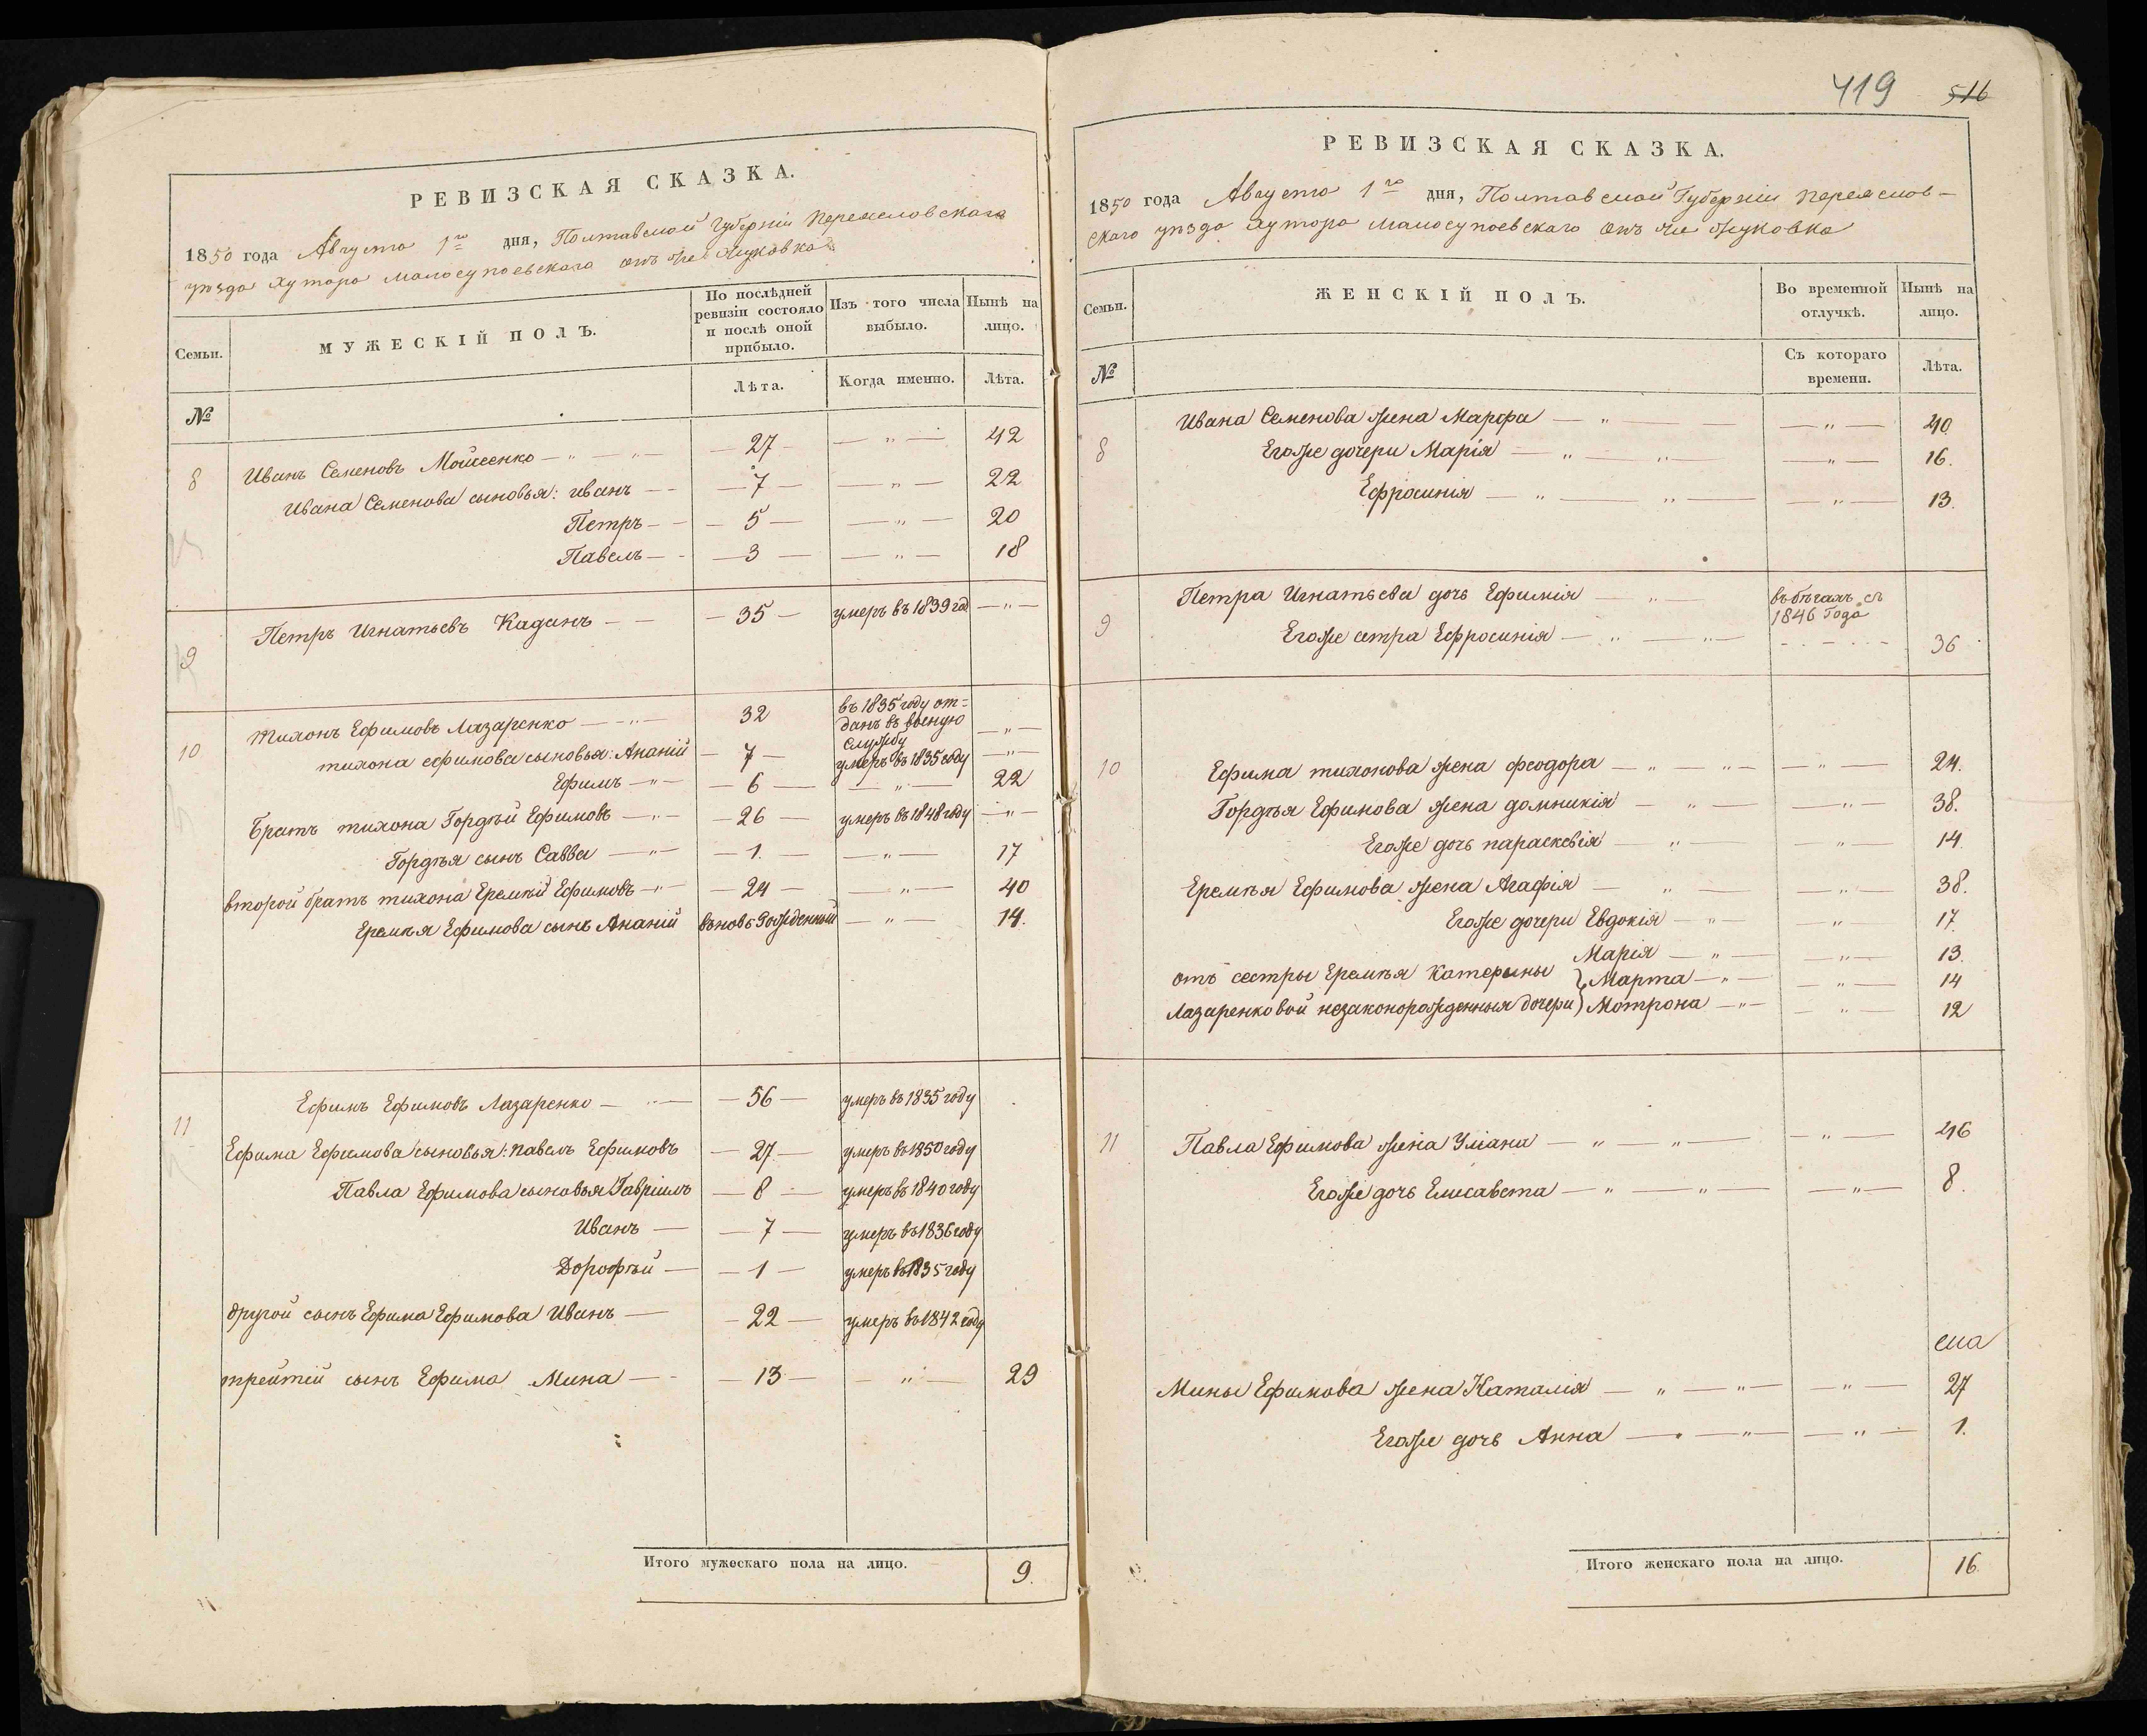 РЕВИЗСКАЯ СКАЗКА.
1850 года Августа 1го дня, Полтавской Губерніи Переяславскаго
уѣзда Хутора Малосупоевскаго онъ же Жуковка
Семьи.
МУЖЕСКІЙ ПОЛЪ.
По послѣдней ревизіи состояло и послѣ оной прибыло.
Изъ того числа выбыло.
Нынѣ на лицо.
№
Лѣта.
Когда именно.
Лѣта.
8 Иванъ Семеновъ Моисеенко — „ — „ — 27 — „ — 42
Ивана Семенова сыновья: иванъ — 7 — „ — 22
Петръ — 5 — „ — 20
Павелъ — 3 — „ — 18
9 Петръ Игнатьевъ — 35 — умеръ въ 1839 год — „ —
10 тихонъ Ефимовъ Лазаренко — „ — 32 въ 1835 году от=
данъ въ военую
службу — „ —
тихона ефимова сыновья: Ананій — 7 — умеръ въ 1835 году — „ —
Ефимъ — „ — 6 — „ — 22
Братъ тихона Гордѣй Ефимовъ — „ — 26 — умеръ въ 1848 году — „ —
Гордѣя сынъ Савва — „ — 1. — „ — 17
второй братъ тихона Еремѣй Ефимовъ — „ — 24 — „ — 40
Еремѣя Ефимова сынъ Ананій вьновь Рожденный — „ — 14.
11 Ефимъ Ефимовъ Лазаренко — „ — 56 — умеръ въ 1835 году
Ефима Ефимова сыновья: павелъ Ефимовъ — 27. — умеръ въ 1850 году
Павла Ефимова сыновья Гавріилъ — 8 — умеръ въ 1840 году
Иванъ — 7 — умеръ въ 1836 году
Дорофѣй — 1 — умеръ въ 1835 году
другой сынъ Ефима Ефимова Иванъ — 22 — умеръ въ 1842 году
трейтій сынъ Ефима Мина — 13 — „ — 29
Итого мужескаго пола на лицо. 9.
419 516
РЕВИЗСКАЯ СКАЗКА.
1850 года Августа 1го дня, Полтавской Губерніи Переяслов-
скаго уѣзда Хутора Малосупоевскаго онъ же Жуковка
Семьи.
ЖЕНСКІЙ ПОЛЪ.
Во временной отлучкѣ.
Нынѣ на лицо.
№
Съ котораго времени.
Лѣта.
8 Ивана Семенова жена Марфа — „ — „ — 40
Егоже дочери Марія — „ — „ — „ — 16.
Ефросинія — „ — „ — „ — 13.
9 Петра Игнатьева дочь Ефимія — „ — въ бѣгахъ съ
1846 Года
Егоже сетра Ефросинія — „ — „ — 36
10 Ефима тихонова жена феодора — „ — „ — „ — 24.
Гордѣя Ефимова жена домникія — „ — „ — 38.
Егоже дочь параскевія — „ — „ — 14.
Еремѣя Ефимова жена Агафія — „ — „ — 38.
Егоже дочери Евдокія — „ — „ — 17.
Марія — „ — „ — 13.
отъ сестры Еремѣя Катерыны } Марта — „ — „ — 14
Лазаренковой незаконорожденныя дочери } Мотрона — „ — „ — 12
11 Павла Ефимова жена Уліана — „ — „ — „ — 46
Егоже дочь Елисавета — „ — „ — „ — 8.
Мины Ефимова жена Наталія — „ — „ — „ — 27
Егоже дочь Анна — „ — „ — 1.
Итого женскаго пола на лицо. 16.